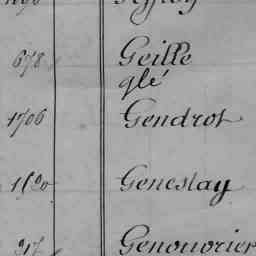 678 Geille
glé
1706 Gendrot
1620 Geneslay
917 Genouvrier